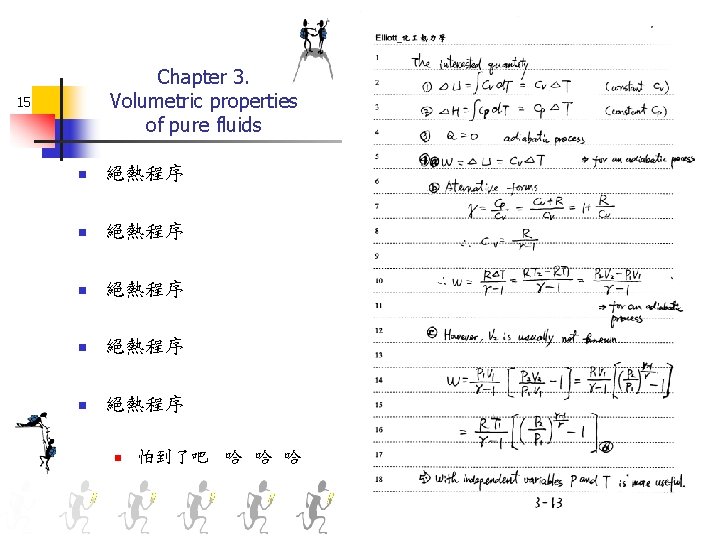 Chapter 3.
15
Volumetric properties
of pure fluids
絕熱程序
絕熱程序
絕熱程序
絕熱程序
絕熱程序
怕到了吧 哈 哈 哈
Elliott_化工熱力學
1 The interested quantity
2 ① ΔU = ∫Cv dT = Cv ΔT (constant Cv)
3 ② ΔH = ∫Cp dT = Cp ΔT (constant Cp)
4 ③ Q = 0 adiabatic process
5 W = ΔU = Cv ΔT ⇒ for an adiabatic process
6 ⓑ Aternative forms
7 γ = Cp/Cv = (Cv+R)/Cv = 1+ R/Cv
8 ∴ Cv = R/(γ-1)
9
10 ∴ W = RΔT/(γ-1) = (RT2-RT1)/(γ-1) = (P2V2-P1V1)/(γ-1)
11 ⇒ for an adiabatic
process
12 ⓒ However, V2 is usually not known
13
14 W = P1V1/(γ-1) [P2V2/P1V1 -1] = RV1/(γ-1) [(P2/P1)^((γ-1)/γ) -1]
15
16 = RT1/(γ-1) [(P2/P1)^((γ-1)/γ) -1]
17
18 with independent variables P and T is more useful.
3-13